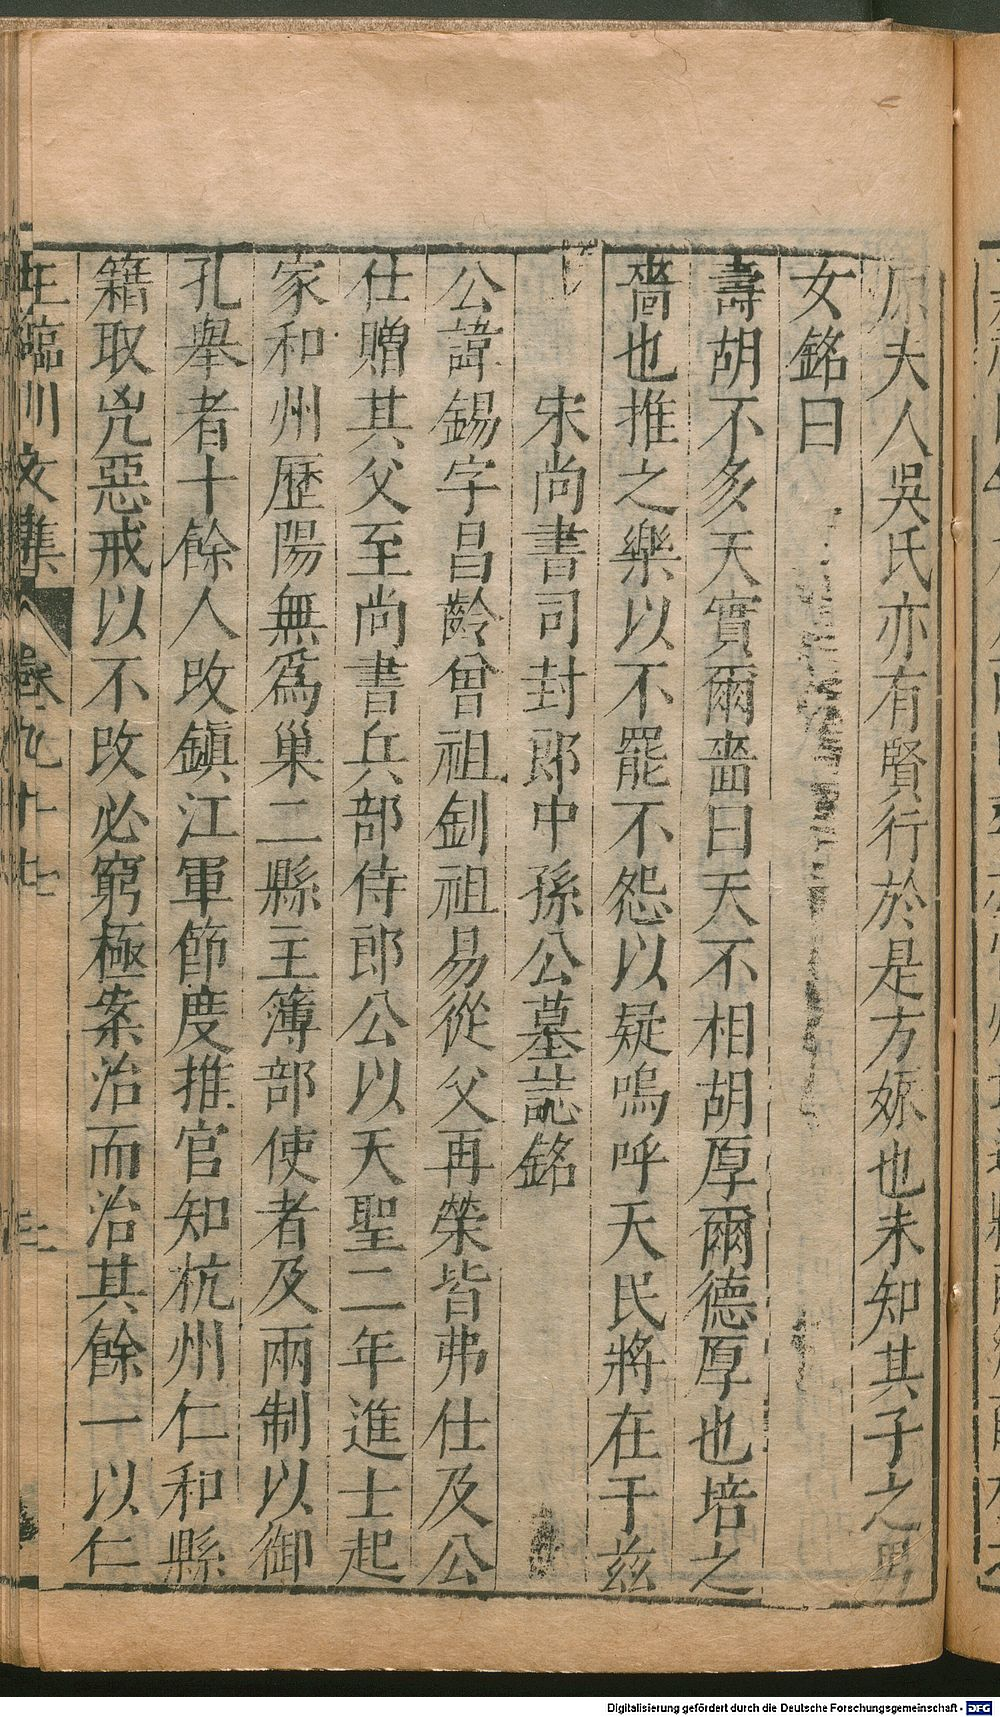 原夫人吳氏亦有賢行於是方娠也未知其子之男
女銘曰
壽胡不多天實爾嗇曰天不相胡厚爾德厚也培之
嗇也推之樂以不罷不怨以疑嗚呼天民將在于茲
宋尚書司封郎中孫公墓誌銘
公諱錫字昌齡曾祖釗祖易從父再榮皆弗仕及公
仕贈其父至尚書兵部侍郎公以天聖二年進士起
家和州歷陽無爲巢二縣主簿部使者及兩制以御
孔舉者十餘人改鎮江軍節度推官知杭州仁和縣
籍取兇惡戒以不改必窮極案治而治其餘一以仁
王臨川文集 卷九十七 三
Digitalisierung gefördert durch die Deutsche Forschungsgemeinschaft - DFG